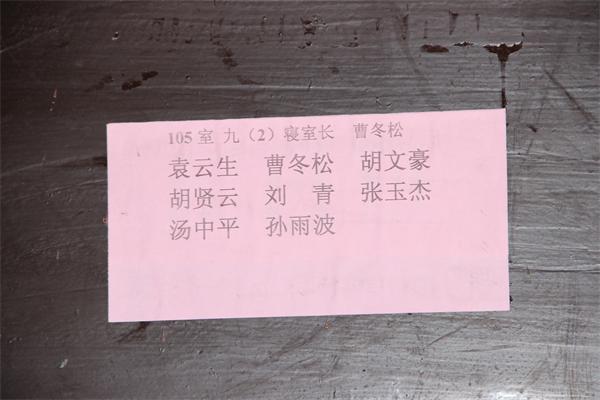 105室 九（2）寝室长 曹冬松
袁云生 曹冬松 胡文豪
胡贤云 刘 青 张玉杰
汤中平 孙雨波